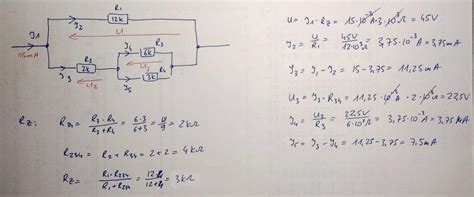 R1
12k
I1
I2
U
15mA
R2
I4
R3
6k
I3
2k
U3
R4
3k
U2
I5
Rz:
R34 = R3·R4 / R3+R4 = 6·3 / 6+3 = 2kΩ
R234 = R2 + R34 = 2+2 = 4kΩ
Rz = R1·R234 / R1+R234 = 3kΩ
U = I1·Rz = 15·10⁻³A·3·10³Ω = 45V
I2 = U / R1 = 45V / 12·10³Ω = 3,75·10⁻³A = 3,75mA
I3 = I1 - I2 = 15 - 3,75 = 11,25mA
U3 = I3·R34 = 11,25·10⁻³A·2·10³Ω = 22,5V
I4 = U3 / R3 = 22,5V / 6·10³Ω = 3,75·10⁻³A = 3,75mA
I5 = I3 - I4 = 11,25 - 3,75 = 7,5mA